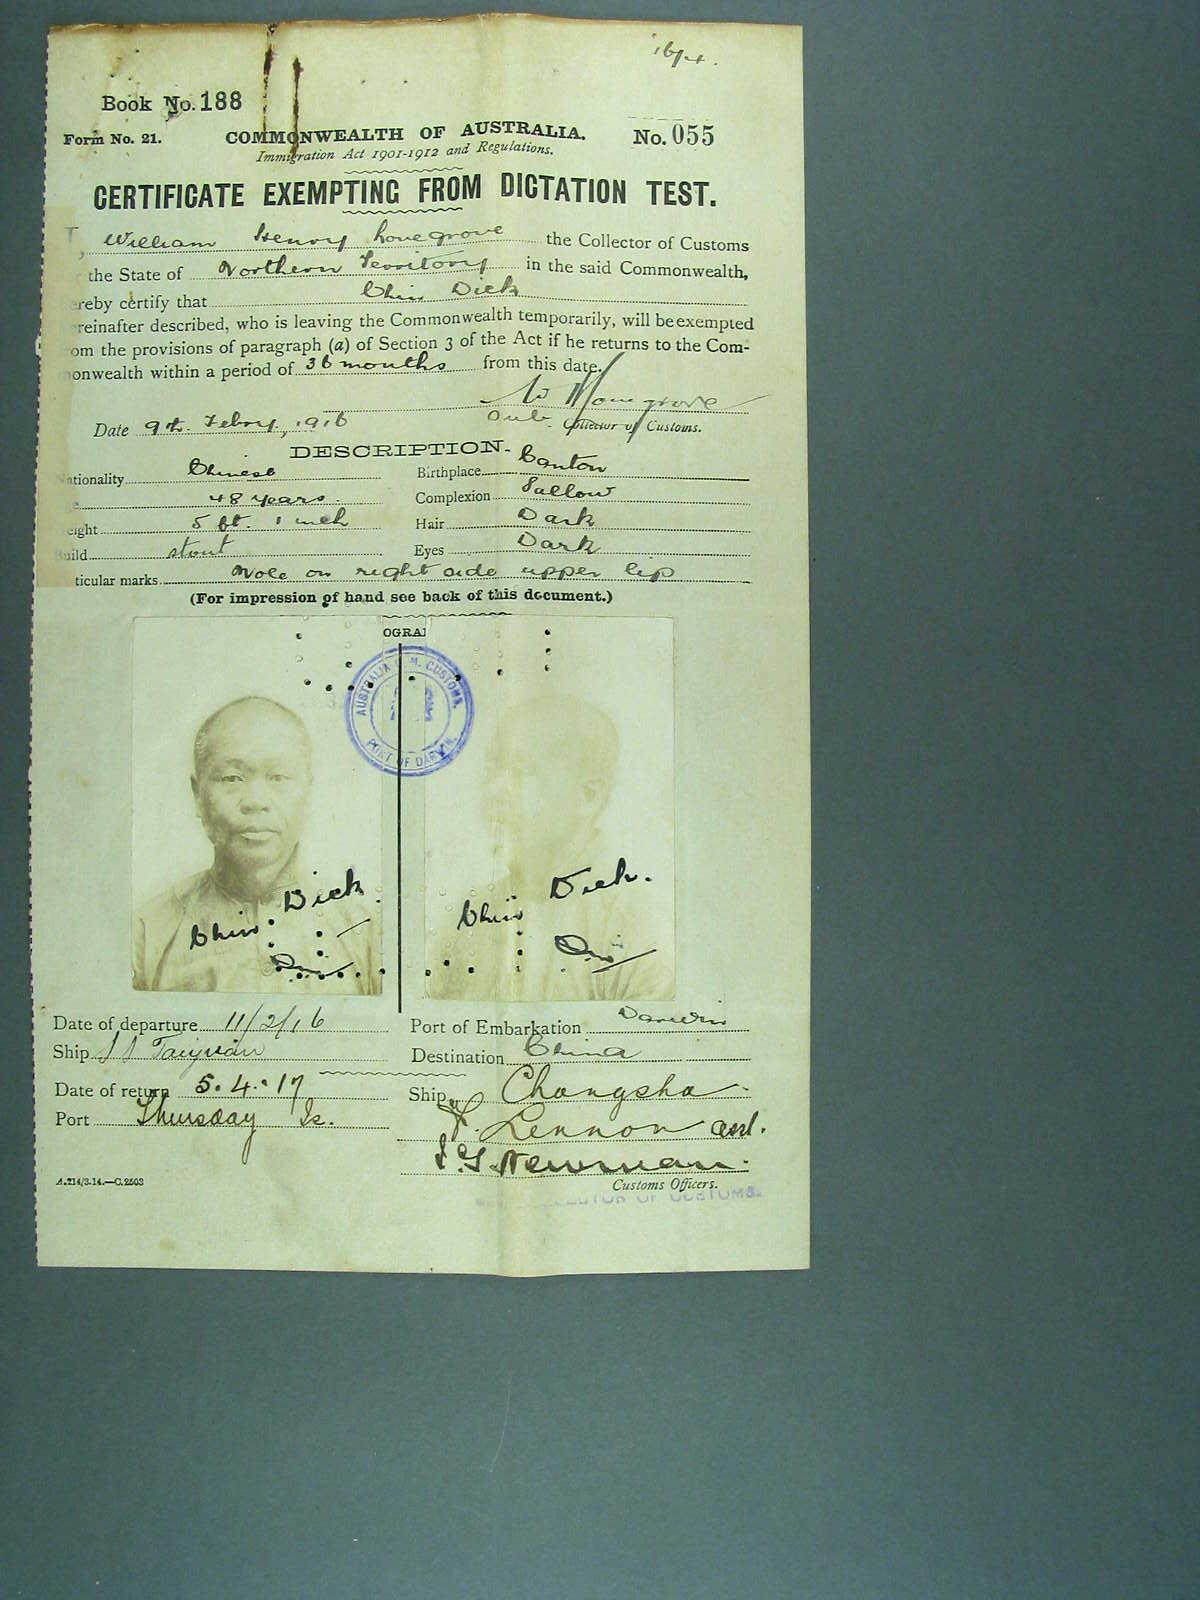 16/4.
Book No. 188
Form No. 21. COMMONWEALTH OF AUSTRALIA. No. 055
Immigration Act 1901-1912 and Regulations.
CERTIFICATE EXEMPTING FROM DICTATION TEST.
I, William Henry Lovegrove the Collector of Customs
the State of Northern Territory in the said Commonwealth,
ereby certify that Chin Dick
reinafter described, who is leaving the Commonwealth temporarily, will be exempted
om the provisions of paragraph (a) of Section 3 of the Act if he returns to the Com-
onwealth within a period of 36 months from this date.
W H Lovegrove
Date 9th Febry, 1916 Sub. Collector of Customs.
DESCRIPTION.
ationality Chinese Birthplace Canton
e 48 years. Complexion Sallow
eight 5 ft. 1 inch Hair Dark
uild stout Eyes Dark
ticular marks Mole on right side upper lip
(For impression of hand see back of this document.)
OGRA
AUSTRALIA H.M. CUSTOMS.
PORT OF DARWIN.
Chin Dick. Chin Dick.
Date of departure 11/2/16 Port of Embarkation Darwin
Ship SS Taiyuan Destination China
Date of return 5.4.17 Ship Changsha
Port Thursday Is. Lennon asst.
J. G. Newman.
A.214/3.14.—C.2503 Customs Officers.
COLLECTOR OF CUSTOMS.